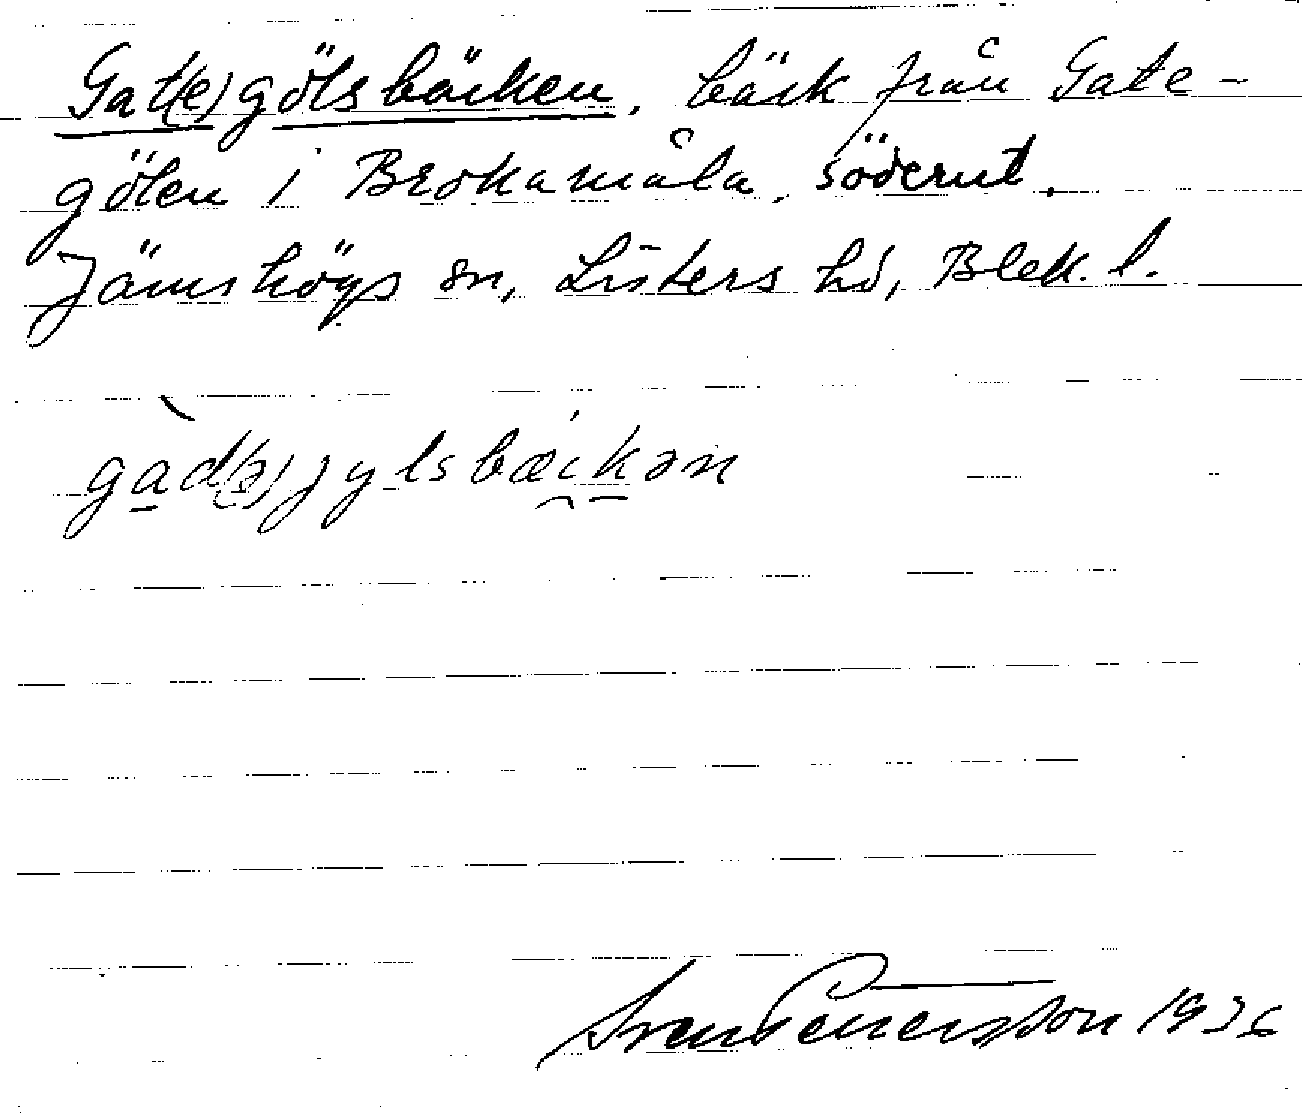 Gat(e)gölsbäcken, bäck från Gate-
gölen i Brokamåla, söderut.
Jämshögs sn, Listers hd, Blek. l.
gàd(ə)jylsbæikən
Sven Petersson 1936